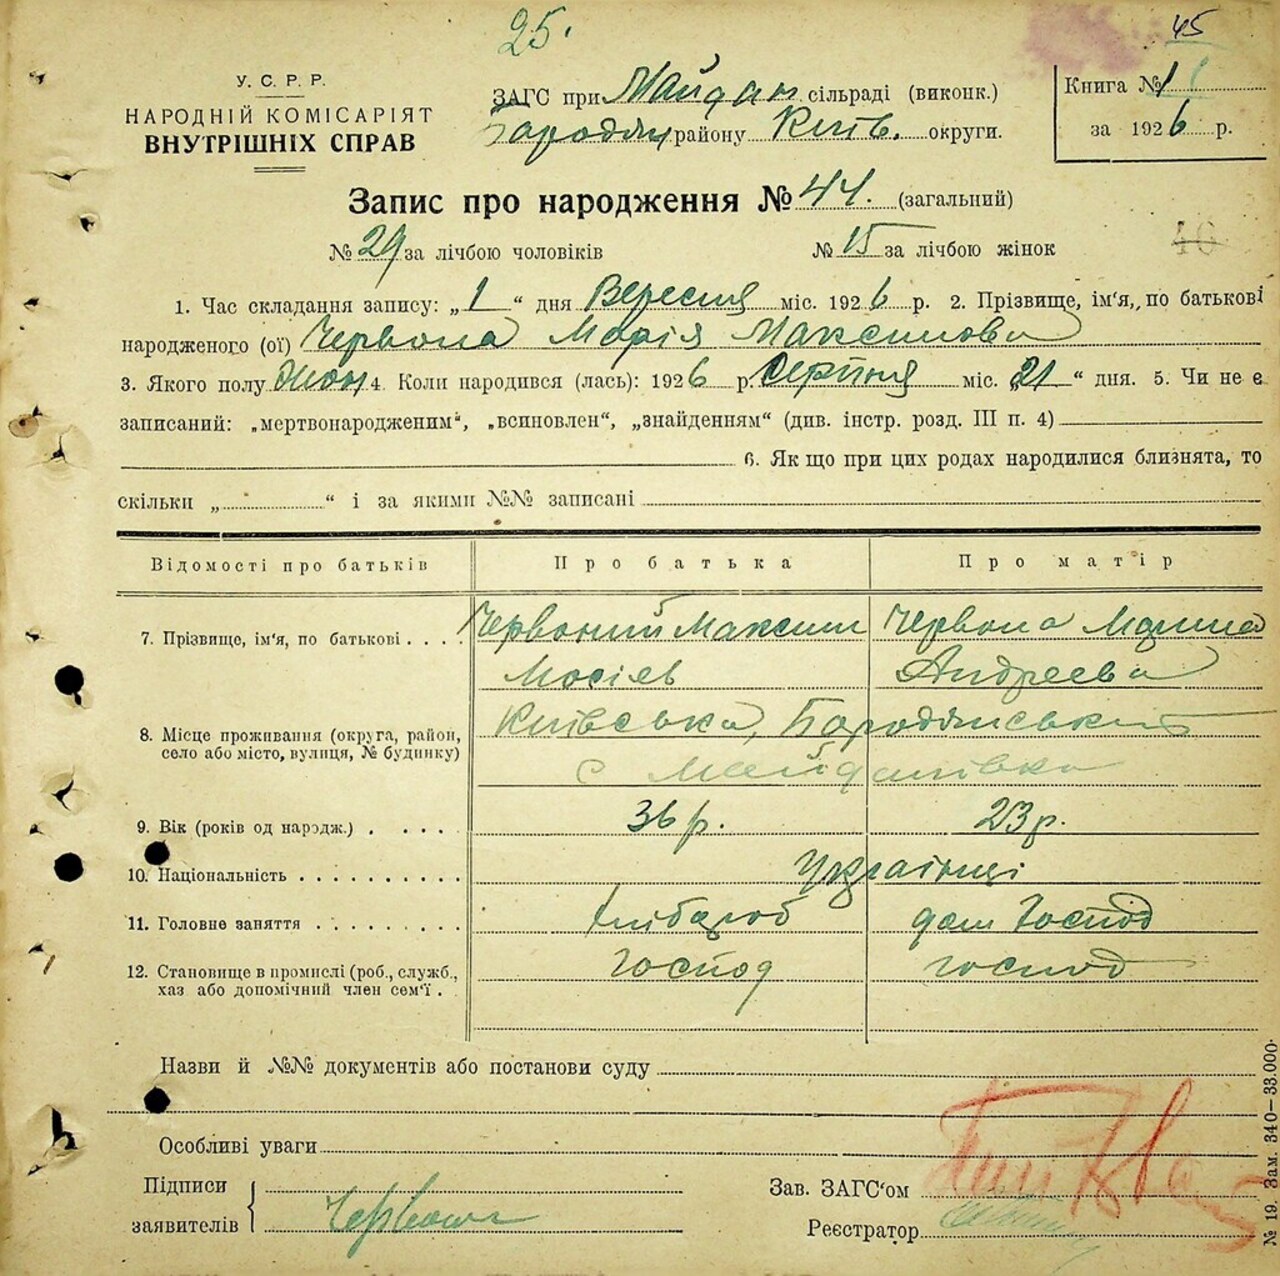 25.
45
У.С.Р.Р.
НАРОДНІЙ КОМІСАРІЯТ
ВНУТРІШНІХ СПРАВ
ЗАГС при Майдан сільраді (виконк.)
Бородян району Київ. округи.
Книга № 1
за 1926 р.
Запис про народження № 44. (загальний)
№ 29 за лічбою чоловіків № 15 за лічбою жінок
40
1. Час складання запису: „1“ дня Вересня міс. 1926 р. 2. Прізвище, ім'я, по батькові
народженого (ої) Червона Марія Максимова
3. Якого полу Жон 4. Коли народився (лась): 1926 р. Серпня міс. „21“ дня. 5. Чи не є
записаний: „мертвонародженим“, „всиновлен“, „знайденням“ (див. інстр. розд. III п. 4)
6. Як що при цих родах народилися близнята, то
скільки „ “ і за якими №№ записані
Відомості про батьків Про батька Про матір
7. Прізвище, ім'я, по батькові . . . . Червоний Максим Червона Марина
Мосіев Андреева
8. Місце проживання (округа, район, Київська, Бородянський
село або місто, вулиця, № будинку)
с Майданівка
9. Вік (років од народж.) . . . . . 36 р. 23 р.
10. Національність . . . . . . . . . . Українці
11. Головне заняття . . . . . . . . . Хлібароб дом Господ
12. Становище в промислі (роб., служб., Господ господ
хаз або допомічний член сем'ї .
Назви й №№ документів або постанови суду
Особливі уваги
Підписи
заявителів
Зав. ЗАГС'ом
Реєстратор
№ 19. Зам. 340—33.000.